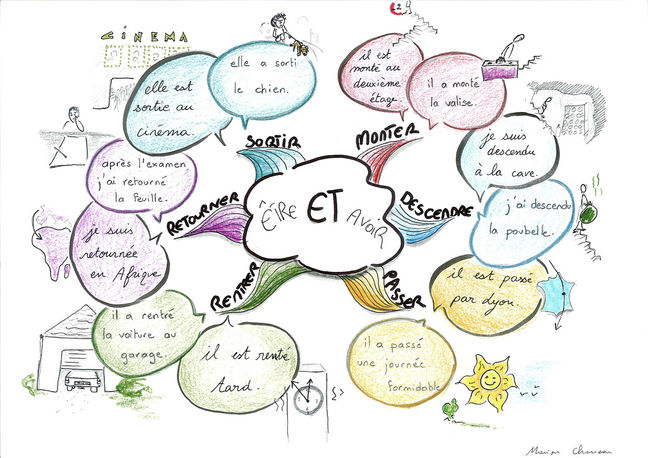 CINEMA
elle est
sortie au
cinéma.
elle a sorti
le chien.
il est
monté au
deuxième
étage.
il a monté
la valise.
SORTIR
MONTER
après l'examen,
j'ai retourné
la feuille.
je suis
descendu
à la cave.
RETOURNER
ÊTRE ET AVOIR
DESCENDRE
je suis
retournée
en Afrique.
j'ai descendu
la poubelle.
RENTRER
PASSER
il a rentré
la voiture au
garage.
il est passé
par dyon.
il est rentré
tard.
il a passé
une journée
formidable